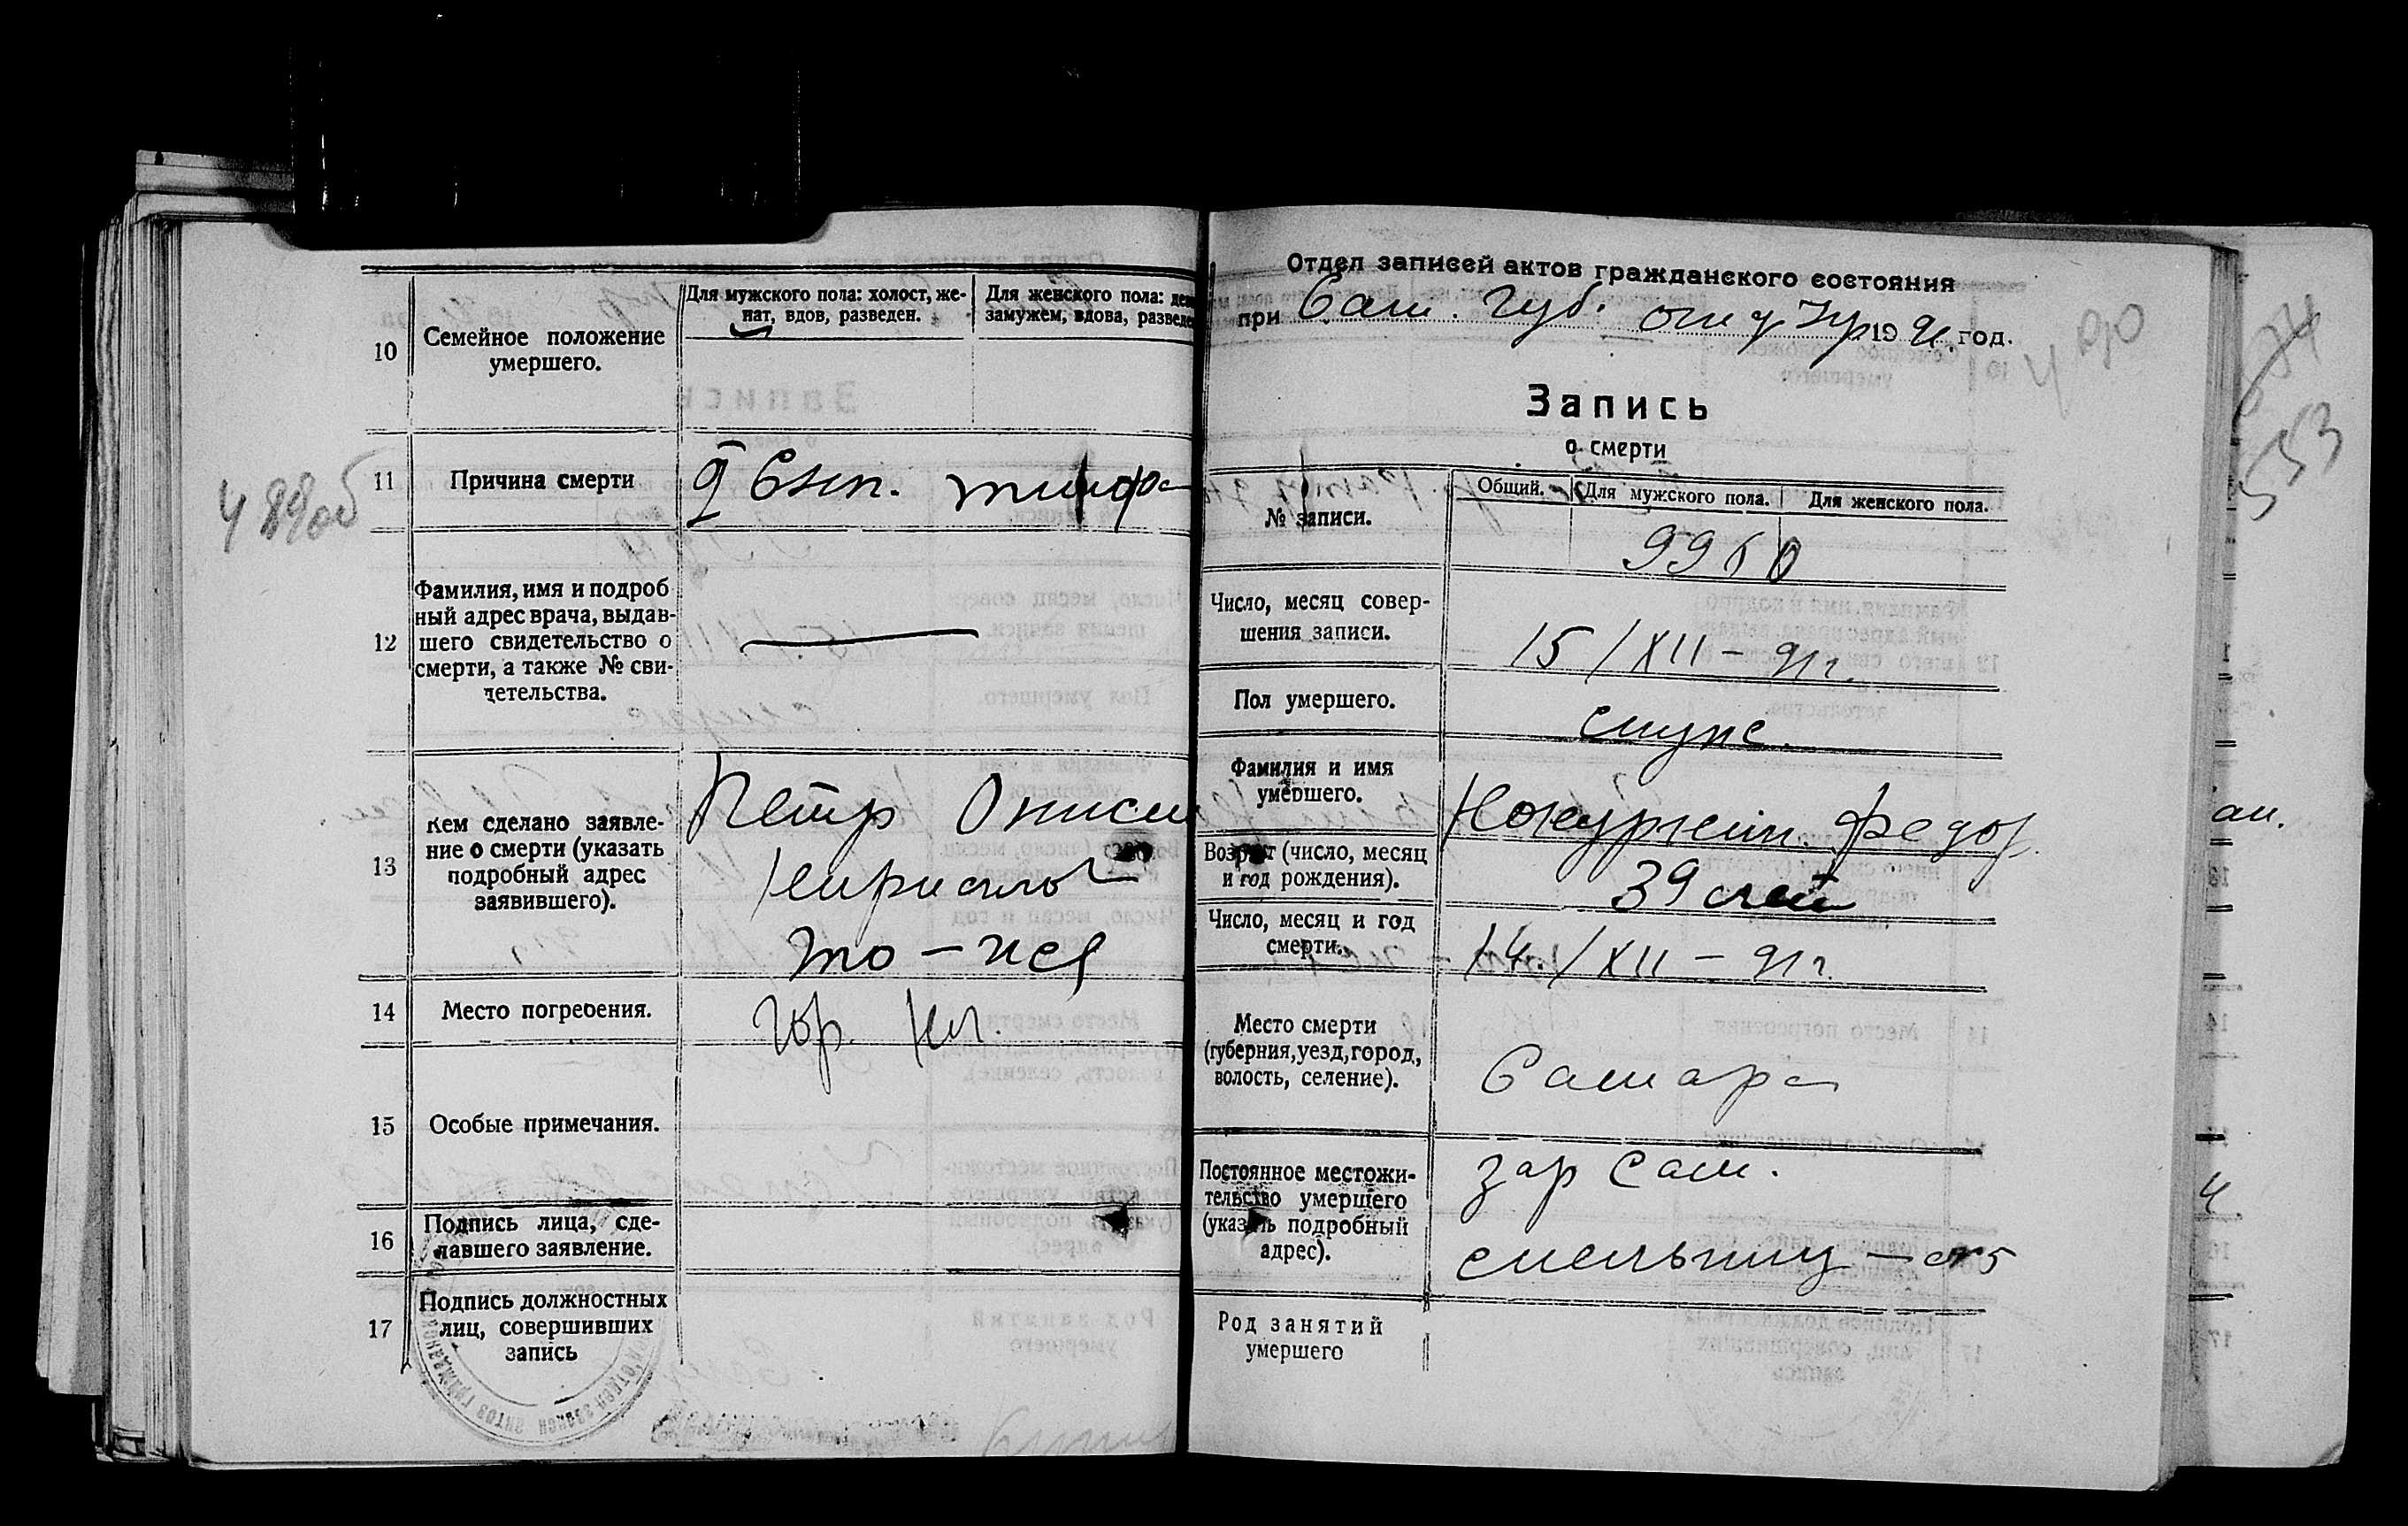 10
Семейное положение
умершего.
Для мужского пола: холост, же-
нат, вдов, разведен.
Для женского пола:
замужем, вдова, разведе
11
Причина смерти
тифа
489об
12
Фамилия, имя и подроб
ный адрес врача, выдав-
шего свидетельство о
смерти, а также № сви-
детельства.
13
Кем сделано заявле-
ние о смерти (указать
подробный адрес
заявившего).
Петр
то-же
14
Место погребения.
Гор. Кл.
15
Особые примечания.
16
Подпись лица, сде-
лавшего заявление.
17
Подпись должностных
лиц, совершивших
запись
Отдел записей актов гражданского состояния
при Сам. Губ. 1921 год.
490
Запись
о смерти
№ записи.
Общий.
Для мужского пола.
Для женского пола.
9960
Число, месяц совер-
шения записи.
15/XII-21г.
Пол умершего.
муже.
Фамилия и имя
умершего.
Кокуркин Федор
Возраст (число, месяц
и год рождения).
39 лет
Число, месяц и год
смерти.
14/XII-21г.
Место смерти
(губерния, уезд, город,
волость, селение).
Самара
Постоянное местожи-
тельство умершего
(указать подробный
адрес).
зар Сам.
мельниц - №5
Род занятий
умершего
553
ам.